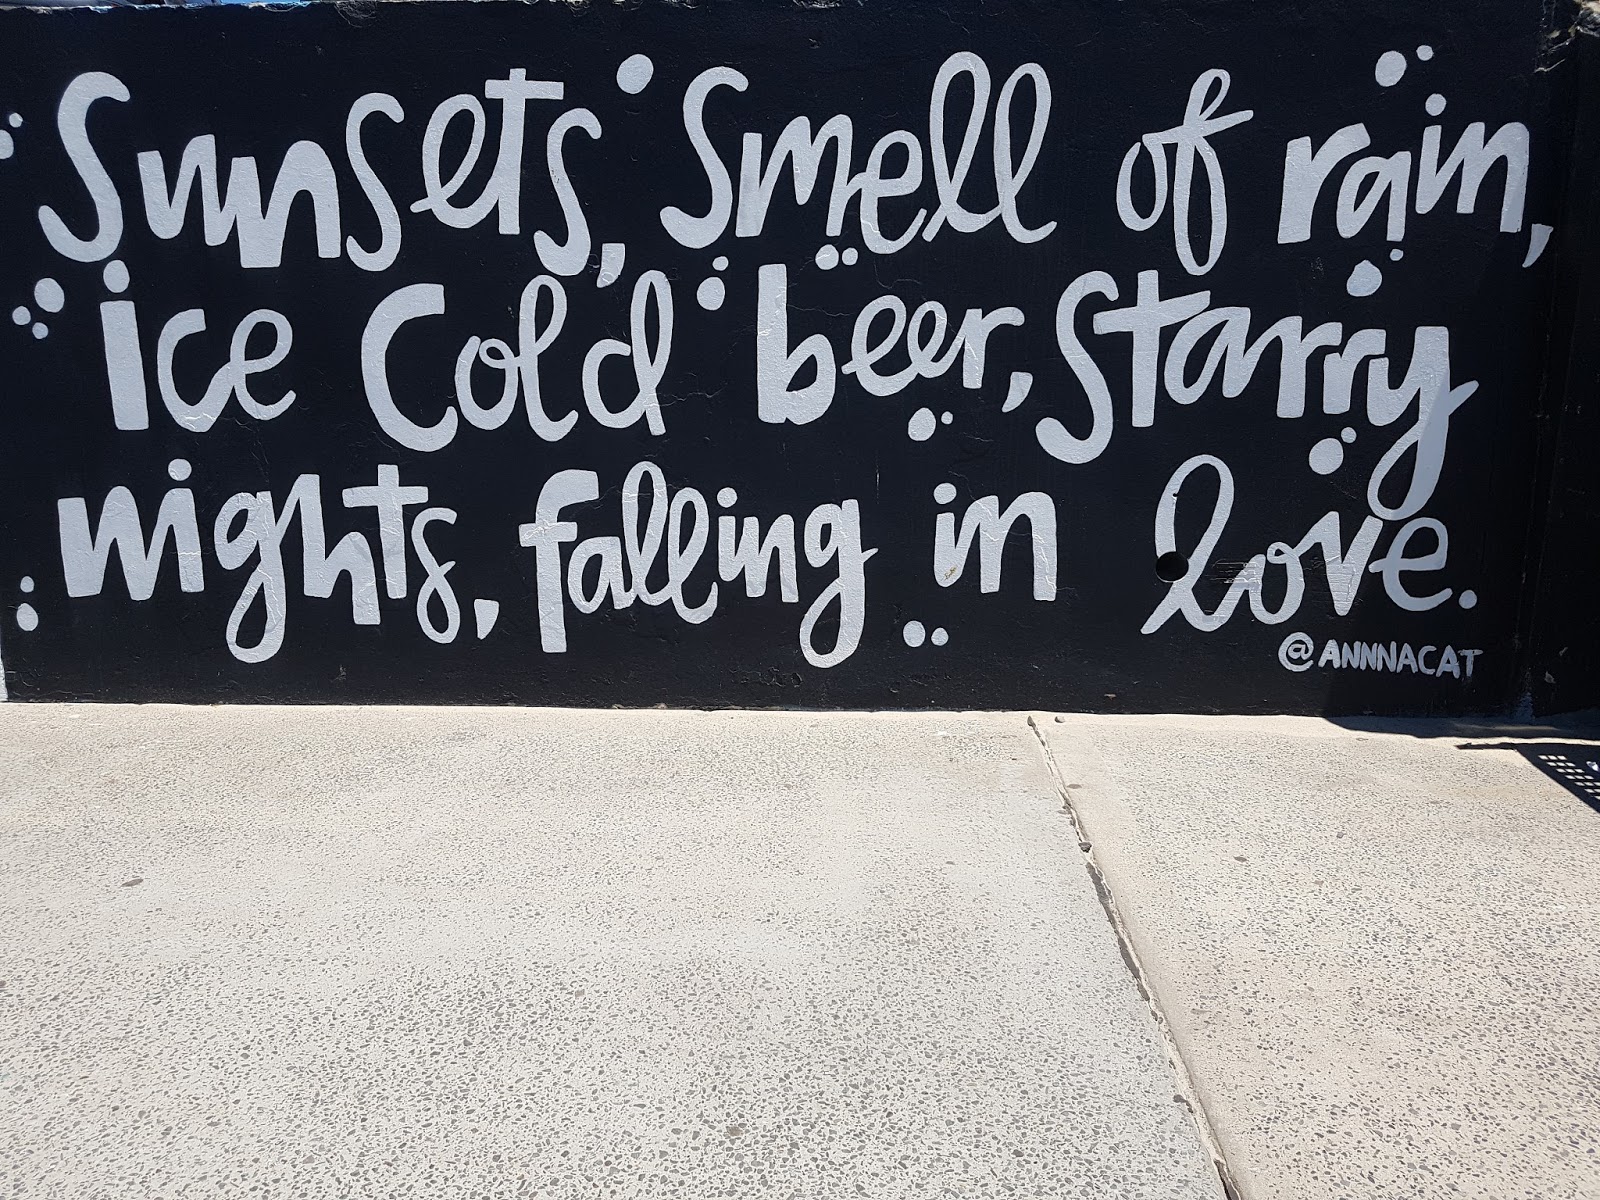 Sunsets, Smell of rain,
ice cold beer, starry
nights, falling in love.
@ANNNACAT